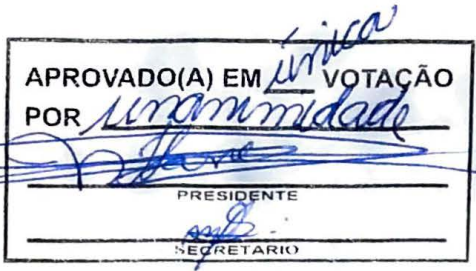 APROVADO(A) EM única VOTAÇÃO
POR unanimidade
PRESIDENTE
SECRETARIO